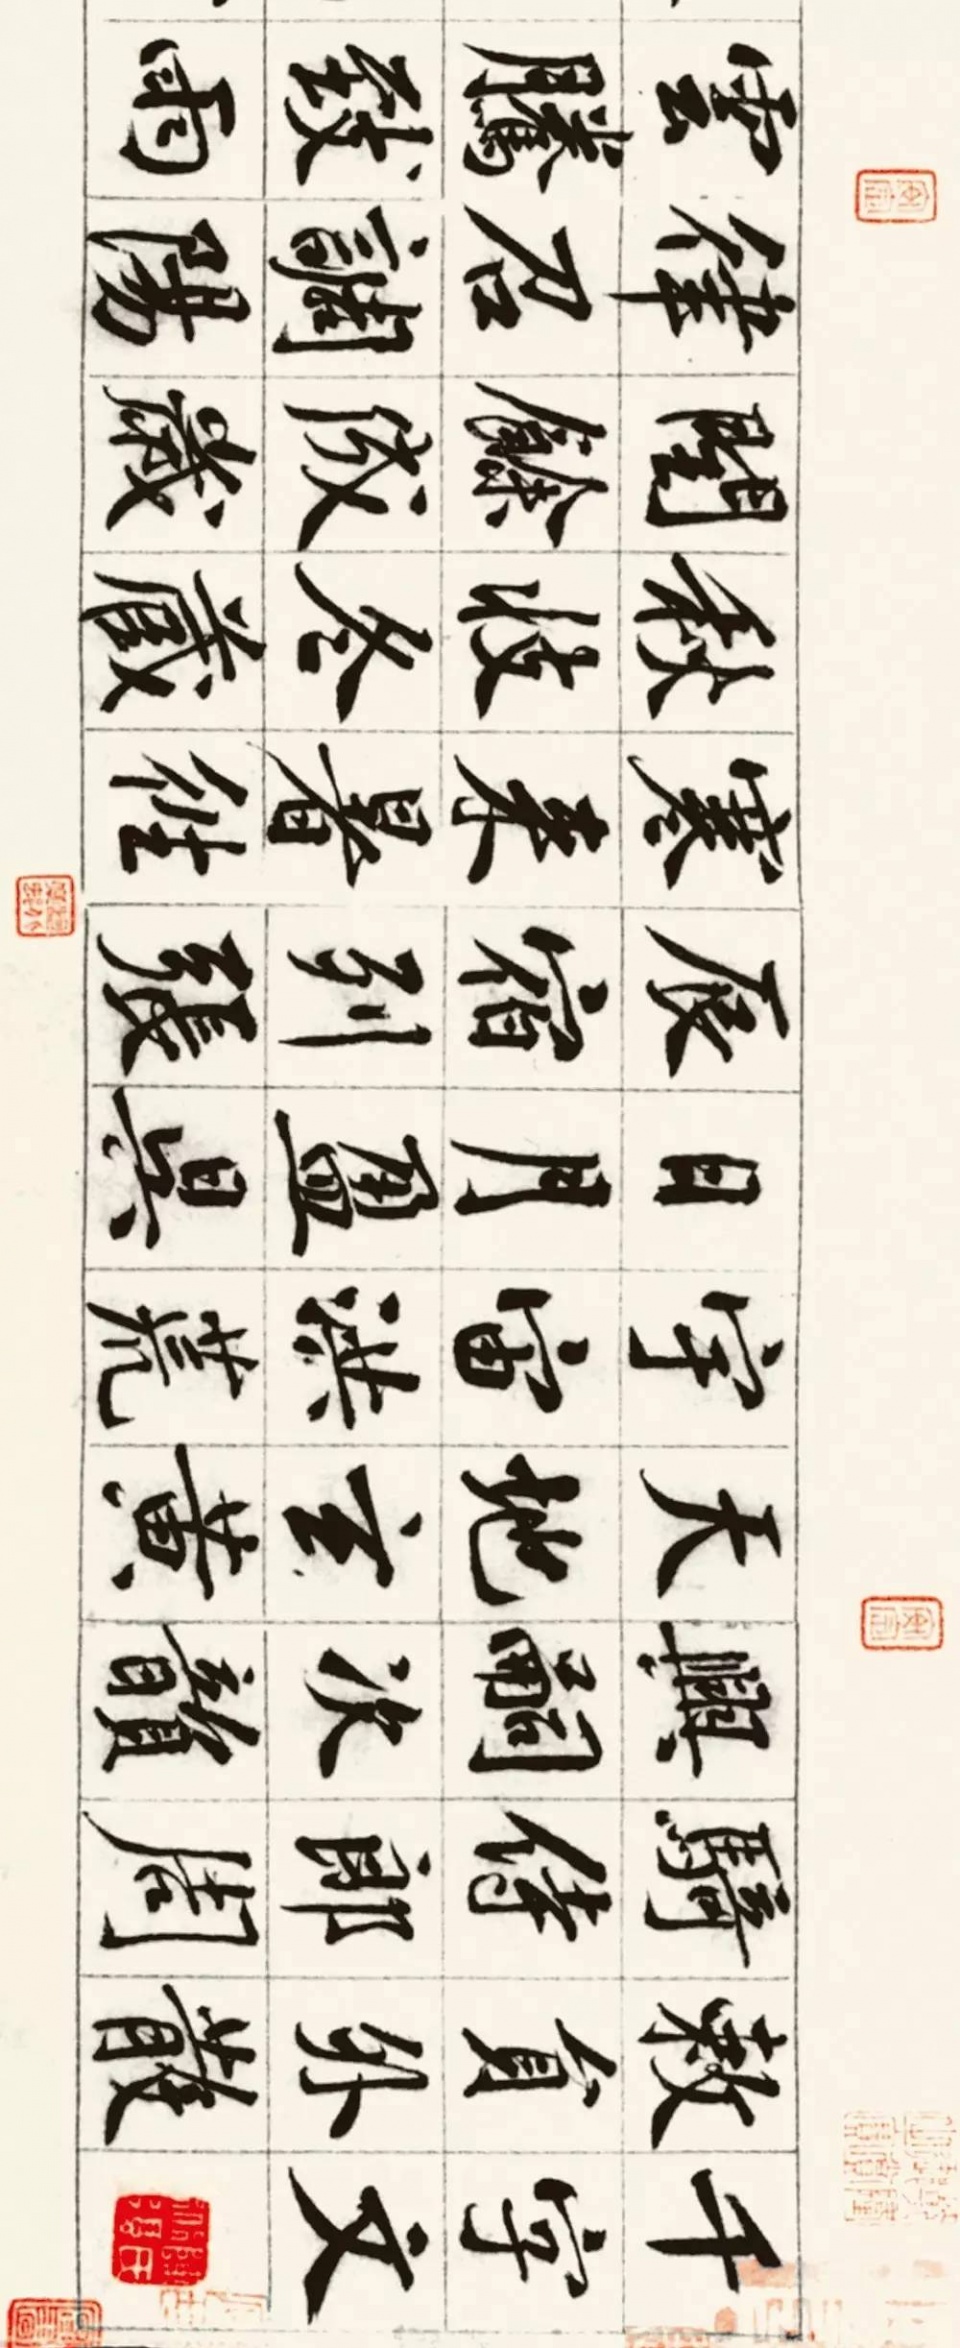 千字文
敕員外散
騎侍郎周
興嗣次韻
天地玄黃
宇宙洪荒
日月盈昃
辰宿列張
寒来暑往
秋收冬藏
閏餘成歲
律召調陽
雲騰致雨